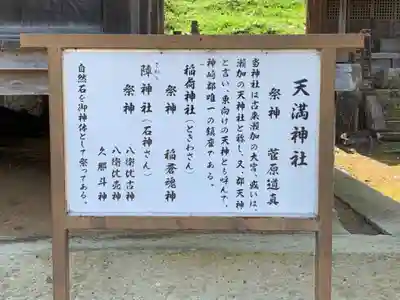 天満神社
祭神 菅原道真
当神社は古来瀬加の大宮、或いは、
瀬加の天神社と称し、又、郡天神
と言い、東向けの天神とも呼んで、
神崎郡唯一の鎮座である。
稲荷神社(ときわさん)
祭神 稲倉魂神
障神社(石神さん)
祭神 八衢比古神
八衢比売神
久那斗神
自然石を御神体として祭ってある。